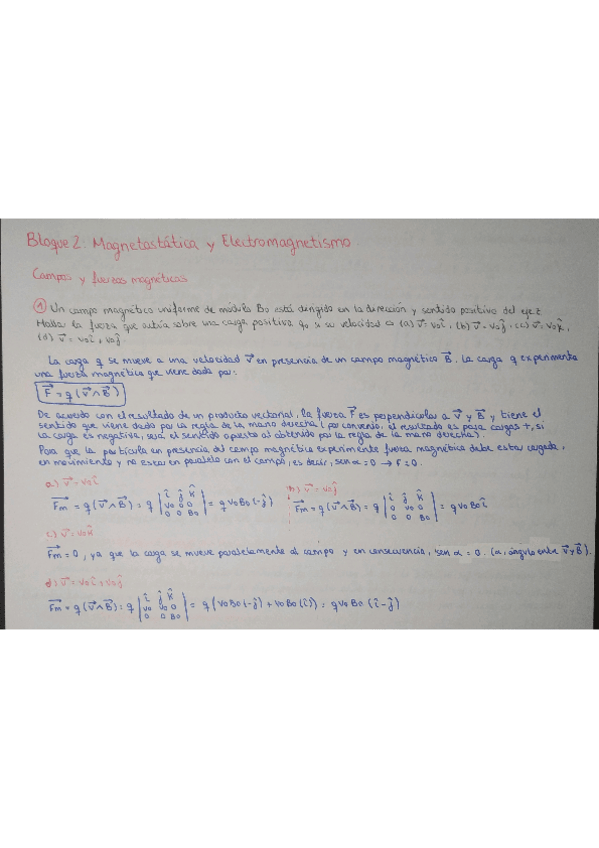 Bloque 2: Magnetostática y Electromagnetismo
Campos y fuerzas magnéticas
① Un campo magnético uniforme de módulo B0 está dirigido en la dirección y sentido positivo del eje z
Hallar la fuerza que actúa sobre una carga positiva q, si su velocidad es (a) v⃗ = v0 î, (b) v⃗ = v0 ĵ, (c) v⃗ = v0 k̂,
(d) v⃗ = v0 î, v0 ĵ.
La carga q se mueve a una velocidad v⃗ en presencia de un campo magnético B⃗. La carga q experimenta
una fuerza magnética que viene dada por:
F⃗ = q (v⃗ ∧ B⃗)
De acuerdo con el resultado de un producto vectorial, la fuerza F⃗ es perpendicular a v⃗ y B⃗, y tiene el
sentido que viene dado por la regla de la mano derecha (por convenio, el resultado es para cargas +, si
la carga es negativa, será el sentido opuesto al obtenido por la regla de la mano derecha).
Para que la partícula en presencia del campo magnético experimente fuerza magnética debe estar cargada,
en movimiento y no estar en paralelo con el campo, es decir, sen α = 0 → F = 0.
a) v⃗ = v0 î
Fm⃗ = q (v⃗ ∧ B⃗) = q | î ĵ k̂ ; v0 0 0 ; 0 0 B0 | = q v0 B0 (-ĵ)
b) v⃗ = v0 ĵ
Fm⃗ = q (v⃗ ∧ B⃗) = q | î ĵ k̂ ; 0 v0 0 ; 0 0 B0 | = q v0 B0 î
c) v⃗ = v0 k̂
Fm⃗ = 0, ya que la carga se mueve paralelamente al campo y en consecuencia, sen α = 0. (α, ángulo entre v⃗ y B⃗).
d) v⃗ = v0 î + v0 ĵ
Fm⃗ = q (v⃗ ∧ B⃗) = q | î ĵ k̂ ; v0 v0 0 ; 0 0 B0 | = q (v0 B0 (-ĵ) + v0 B0 (î)) = q v0 B0 (î - ĵ)